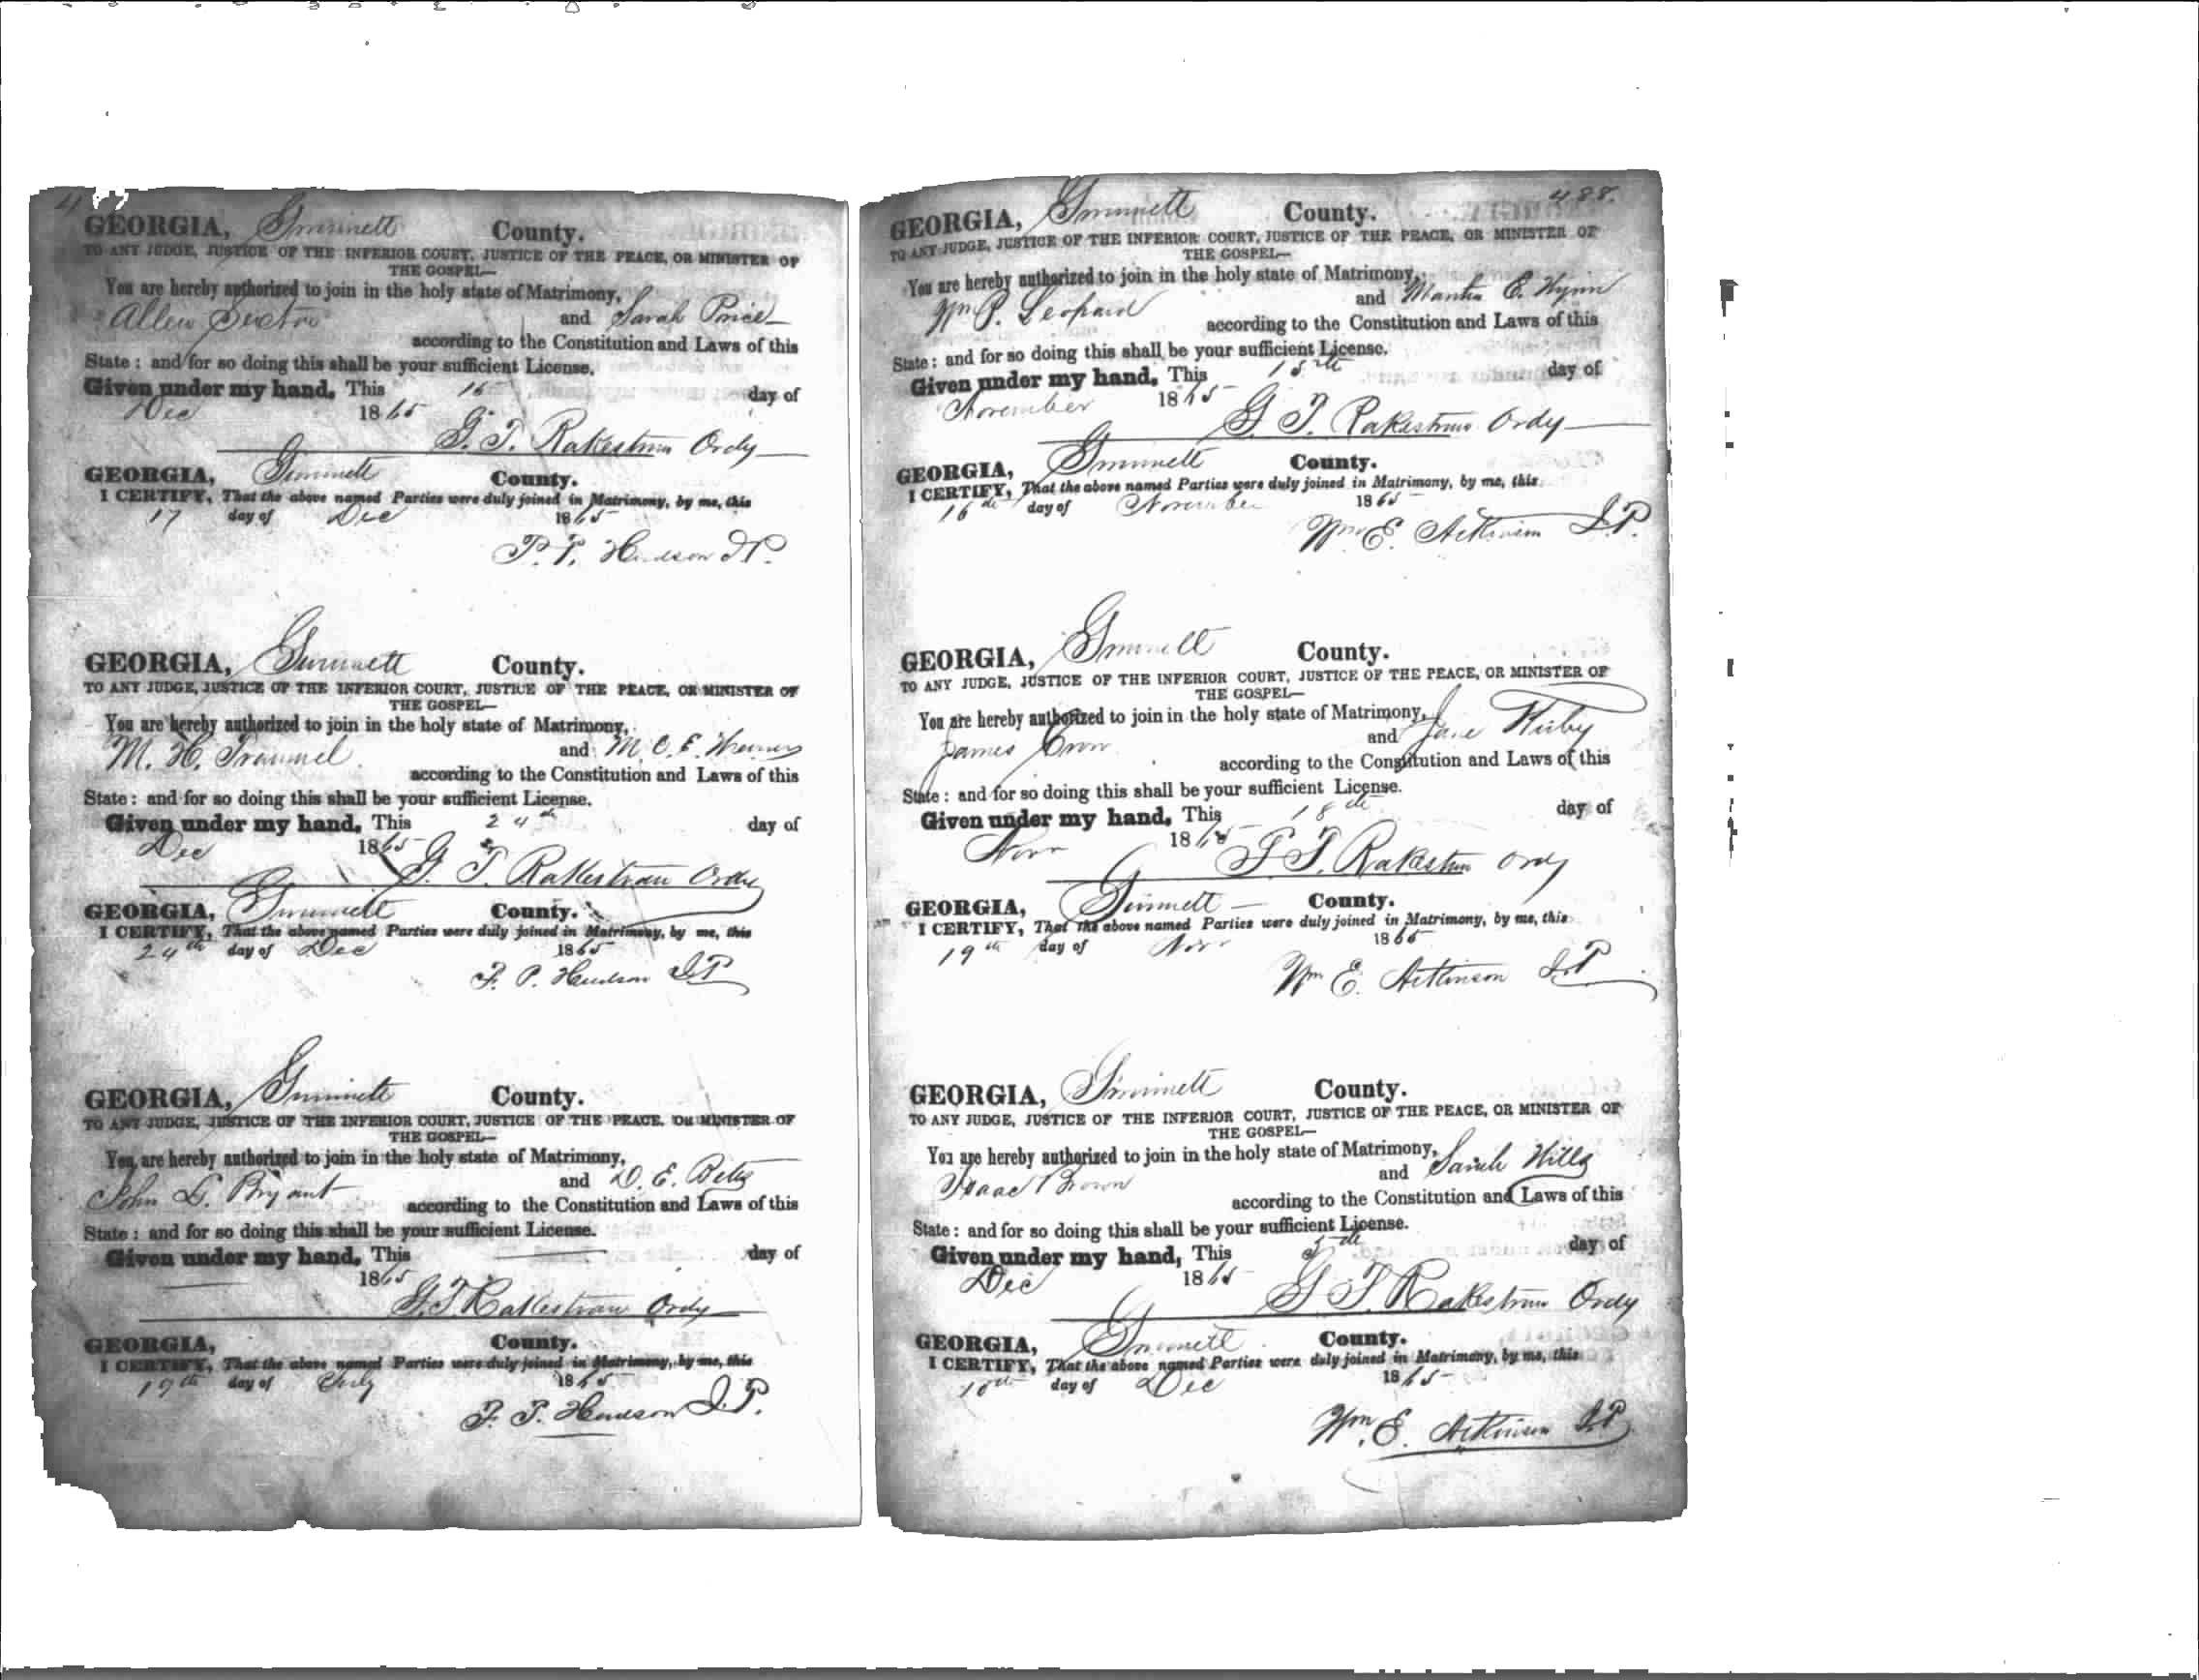 GEORGIA, Gwinnett County.
TO ANY JUDGE, JUSTICE OF THE INFERIOR COURT, JUSTICE OF THE PEACE, OR MINISTER OF
THE GOSPEL—
You are hereby authorized to join in the holy state of Matrimony,
Allen and Sarah Price
according to the Constitution and Laws of this
State: and for so doing this shall be your sufficient License.
Given under my hand, This 16 day of
Dec 1865
G. T. Rakestraw Ordy
GEORGIA, Gwinnett County.
I CERTIFY, That the above named Parties were duly joined in Matrimony, by me, this
17 day of Dec 1865
Hudson J.P.
GEORGIA, Gwinnett County.
TO ANY JUDGE, JUSTICE OF THE INFERIOR COURT, JUSTICE OF THE PEACE, OR MINISTER OF
THE GOSPEL—
You are hereby authorized to join in the holy state of Matrimony,
M. H. Trammel and M. C. F.
according to the Constitution and Laws of this
State: and for so doing this shall be your sufficient License.
Given under my hand, This 24th day of
Dec 1865
G. T. Rakestraw Ordy
GEORGIA, Gwinnett County.
I CERTIFY, That the above named Parties were duly joined in Matrimony, by me, this
24th day of Dec 1865
F. P. Hudson J.P.
GEORGIA, Gwinnett County.
TO ANY JUDGE, JUSTICE OF THE INFERIOR COURT, JUSTICE OF THE PEACE, OR MINISTER OF
THE GOSPEL—
You are hereby authorized to join in the holy state of Matrimony,
John L. Bryant and D. E. Betts
according to the Constitution and Laws of this
State: and for so doing this shall be your sufficient License.
Given under my hand, This day of
1865
G. T. Rakestraw Ordy
GEORGIA, County.
I CERTIFY, That the above named Parties were duly joined in Matrimony, by me, this
day of July 1865
F. P. Hudson J.P.
488.
GEORGIA, Gwinnett County.
TO ANY JUDGE, JUSTICE OF THE INFERIOR COURT, JUSTICE OF THE PEACE, OR MINISTER OF
THE GOSPEL—
You are hereby authorized to join in the holy state of Matrimony,
Wm P. Leopard and Martha C. Wynn
according to the Constitution and Laws of this
State: and for so doing this shall be your sufficient License.
Given under my hand, This 15th day of
November 1865
G. T. Rakestraw Ordy
GEORGIA, Gwinnett County.
I CERTIFY, That the above named Parties were duly joined in Matrimony, by me, this
16th day of November 1865
Wm E. Atkinson J.P.
GEORGIA, Gwinnett County.
TO ANY JUDGE, JUSTICE OF THE INFERIOR COURT, JUSTICE OF THE PEACE, OR MINISTER OF
THE GOSPEL—
You are hereby authorized to join in the holy state of Matrimony,
James and Jane Kirby
according to the Constitution and Laws of this
State: and for so doing this shall be your sufficient License.
Given under my hand, This 18th day of
Novr 1865
G. T. Rakestraw Ordy
GEORGIA, Gwinnett County.
I CERTIFY, That the above named Parties were duly joined in Matrimony, by me, this
19th day of Novr 1865
Wm E. Atkinson J.P.
GEORGIA, Gwinnett County.
TO ANY JUDGE, JUSTICE OF THE INFERIOR COURT, JUSTICE OF THE PEACE, OR MINISTER OF
THE GOSPEL—
You are hereby authorized to join in the holy state of Matrimony,
Isaac Brown and Sarah Hills
according to the Constitution and Laws of this
State: and for so doing this shall be your sufficient License.
Given under my hand, This 5th day of
Dec 1865
G. T. Rakestraw Ordy
GEORGIA, Gwinnett County.
I CERTIFY, That the above named Parties were duly joined in Matrimony, by me, this
10th day of Dec 1865
Wm. E. Atkinson J.P.